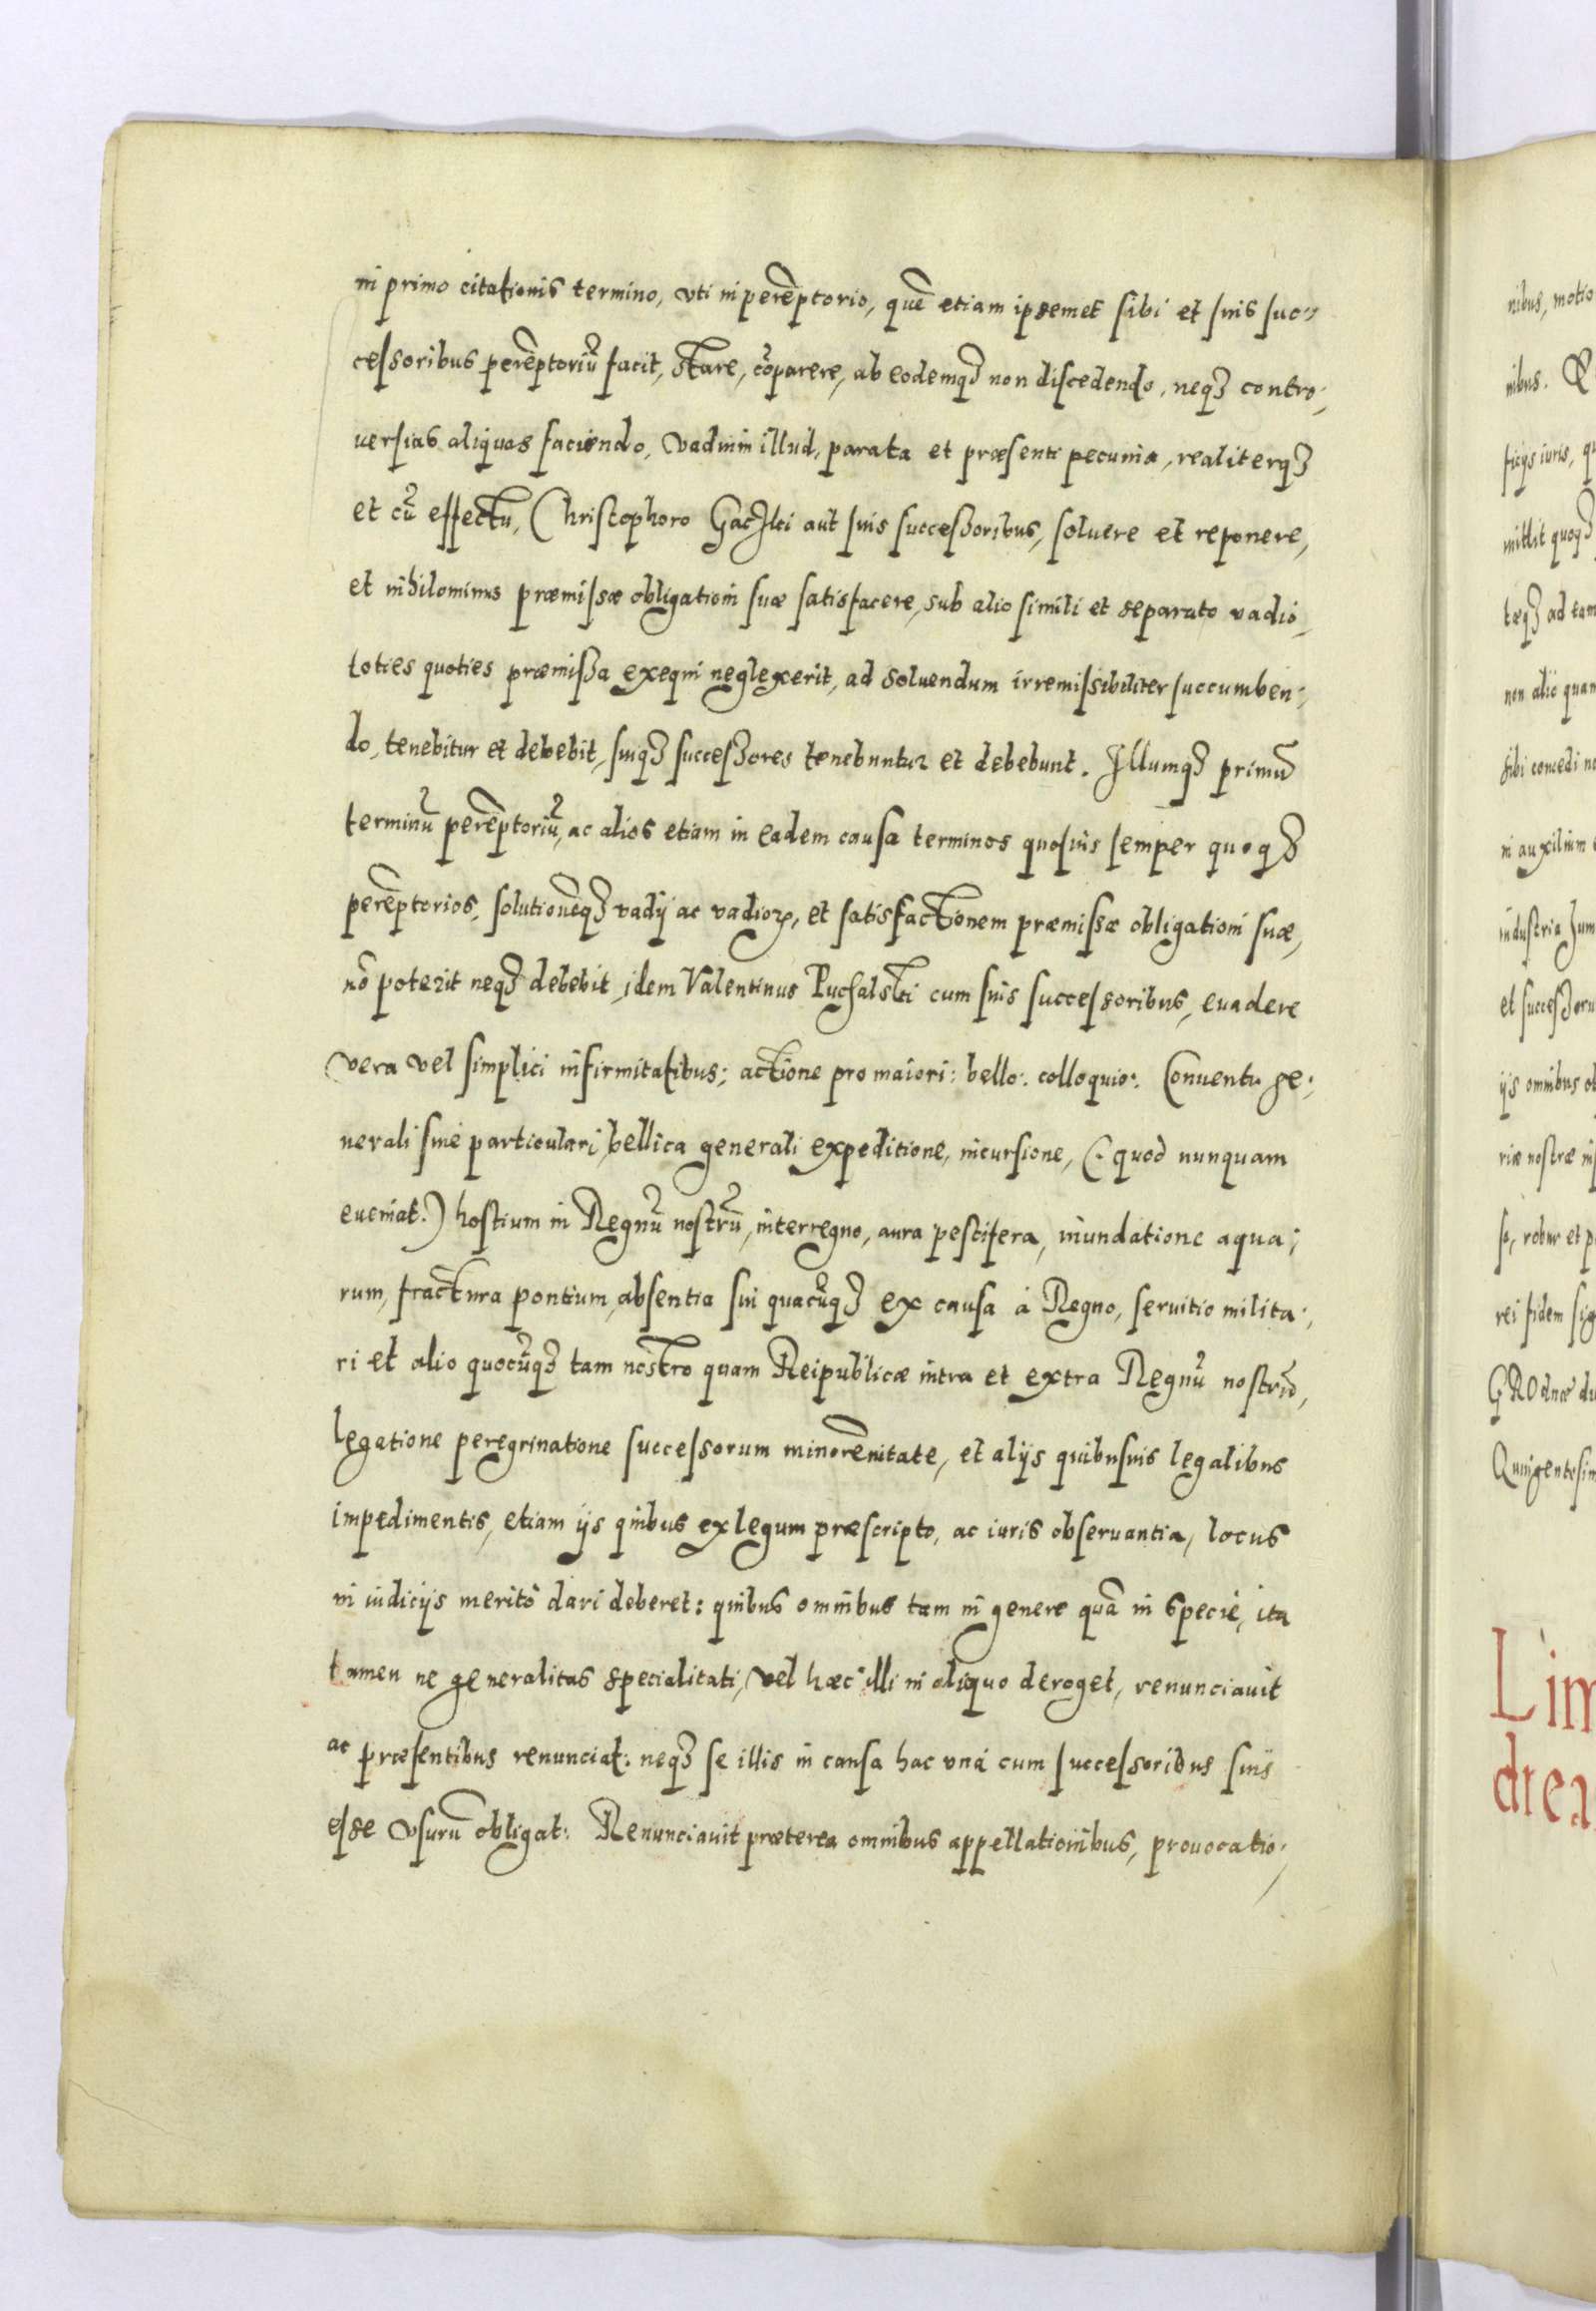 in primo citationis termino, vti in perēptorio, quē etiam ipsemet sibi et suis suc-
cessoribus perēptoriū facit, stare, cōparere, ab eodemqȝ non discedendo, neqȝ contro-
uersias aliquas faciendo, vadium illud, parata et præsenti pecunia, realiterqȝ
et cū effectu, Christophoro aut suis successoribus, soluere et reponere,
et nihilominus præmissæ obligationi suæ satisfacere, sub alio simili et separato vadio,
toties quoties præmissa exequi neglexerit, ad soluendum irremissibiliter succumben-
do, tenebitur et debebit, suiqȝ successores tenebuntur et debebunt. Illumqȝ primū
terminū perēptoriū, ac alios etiam in eadem causa terminos quosuis semper quoqȝ
perēptorios, solutionēqȝ vadij ac vadioꝝ, et satisfactionem præmissæ obligationi suæ,
nō poterit neqȝ debebit, idem Valentinus Puchalski cum suis successoribus, euadere
vera vel simplici infirmitatibus; actione pro maiori: bello: colloquio: Conuentu ge-
nerali siue particulari, bellica generali expeditione, incursione, (: quod nunquam
eueniat.) hostium in Regnū nostrū, interregno, aura pestifera, inundatione aqua-
rum, fractura pontium, absentia sui quacūqȝ ex causa à Regno, seruitio milita-
ri et alio quocūqȝ tam nostro quam Reipublicæ intra et extra Regnū nostrū,
legatione peregrinatione successorum minorēnitate, et alijs quibusuis legalibus
impedimentis, etiam ijs quibus ex legum præscripto, ac iuris obseruantia, locus
in iudicijs meritò dari deberet: quibus omnibus tam in genere quā in specie, ita
tamen ne generalitas specialitati, vel hæc illi in aliquo deroget, renunciauit
ac præsentibus renunciat: neqȝ se illis in causa hac vnà cum successoribus suis
esse vsurū obligat: Renunciauit præterea omnibus appellationibus, prouocatio-
nibus, motio
nibus. 
ficijs iuris, qu
mittit quoqȝ
tæqȝ ad eam
non alio quam
sibi concedi no
in auxilium
industria hum
et successoru
ijs omnibus ob
riæ nostræ
robur et p
rei fidem sig
GROdnæ du
Quingentesim
Lim
drea